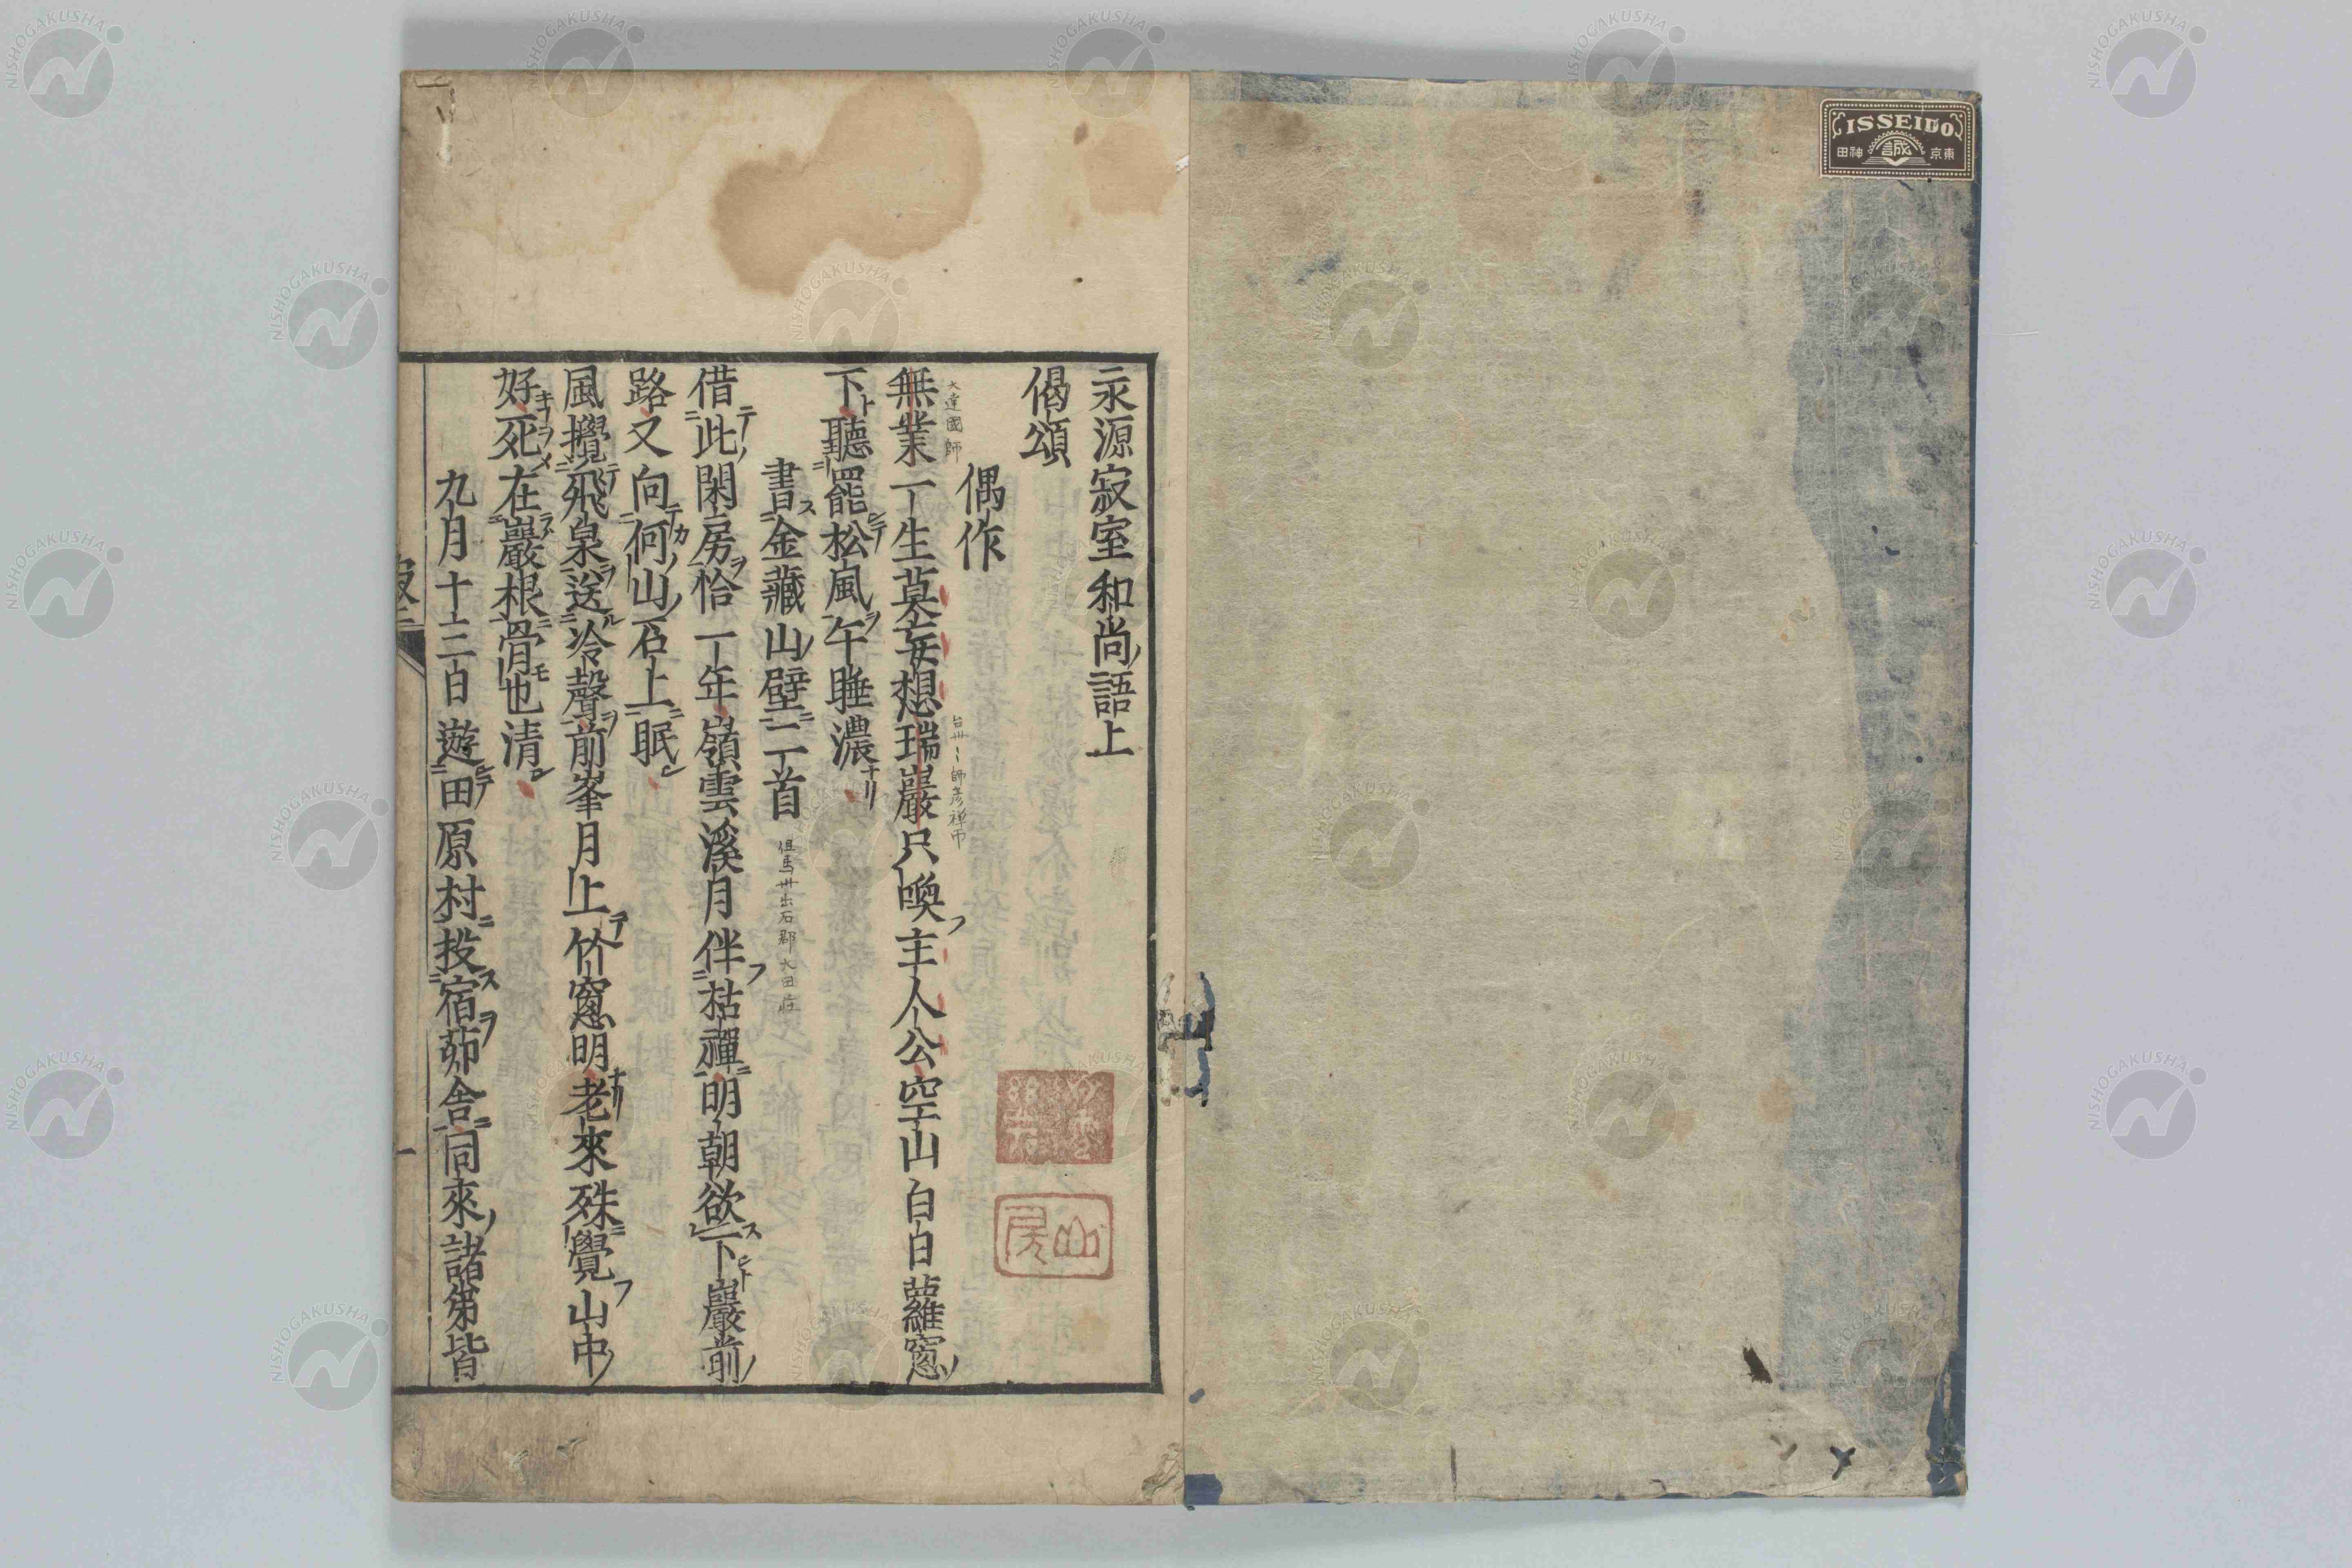 ISSEIDO
東京
誠
神田
永源寂室和尚語上
偈頌
偶作
大達國師
無業一生莫妄想瑞巖只喚主人公空山白日蘿窓
下聽罷松風午睡濃
書金藏山壁二首
但馬卅出石郡太田莊
借此閑房恰一年嶺雲溪月伴枯禪明朝欲下巖前
路又向何山石上眠
風攪飛泉送冷聲前峯月上竹窓明老來殊覺山中
好死在巖根骨也清
九月十三日遊田原村投宿茆舍同來諸弟皆
山房
NISHOGAKUSHA